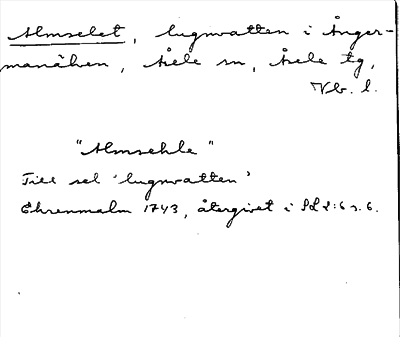 Almselet, lugnvatten i Ånger-
manälven, Åsele sn, Åsele tg,
Vb. l.
"Almsehle"
Till sel 'lugnvatten'
Ehrenmalm 1743, återgivet i